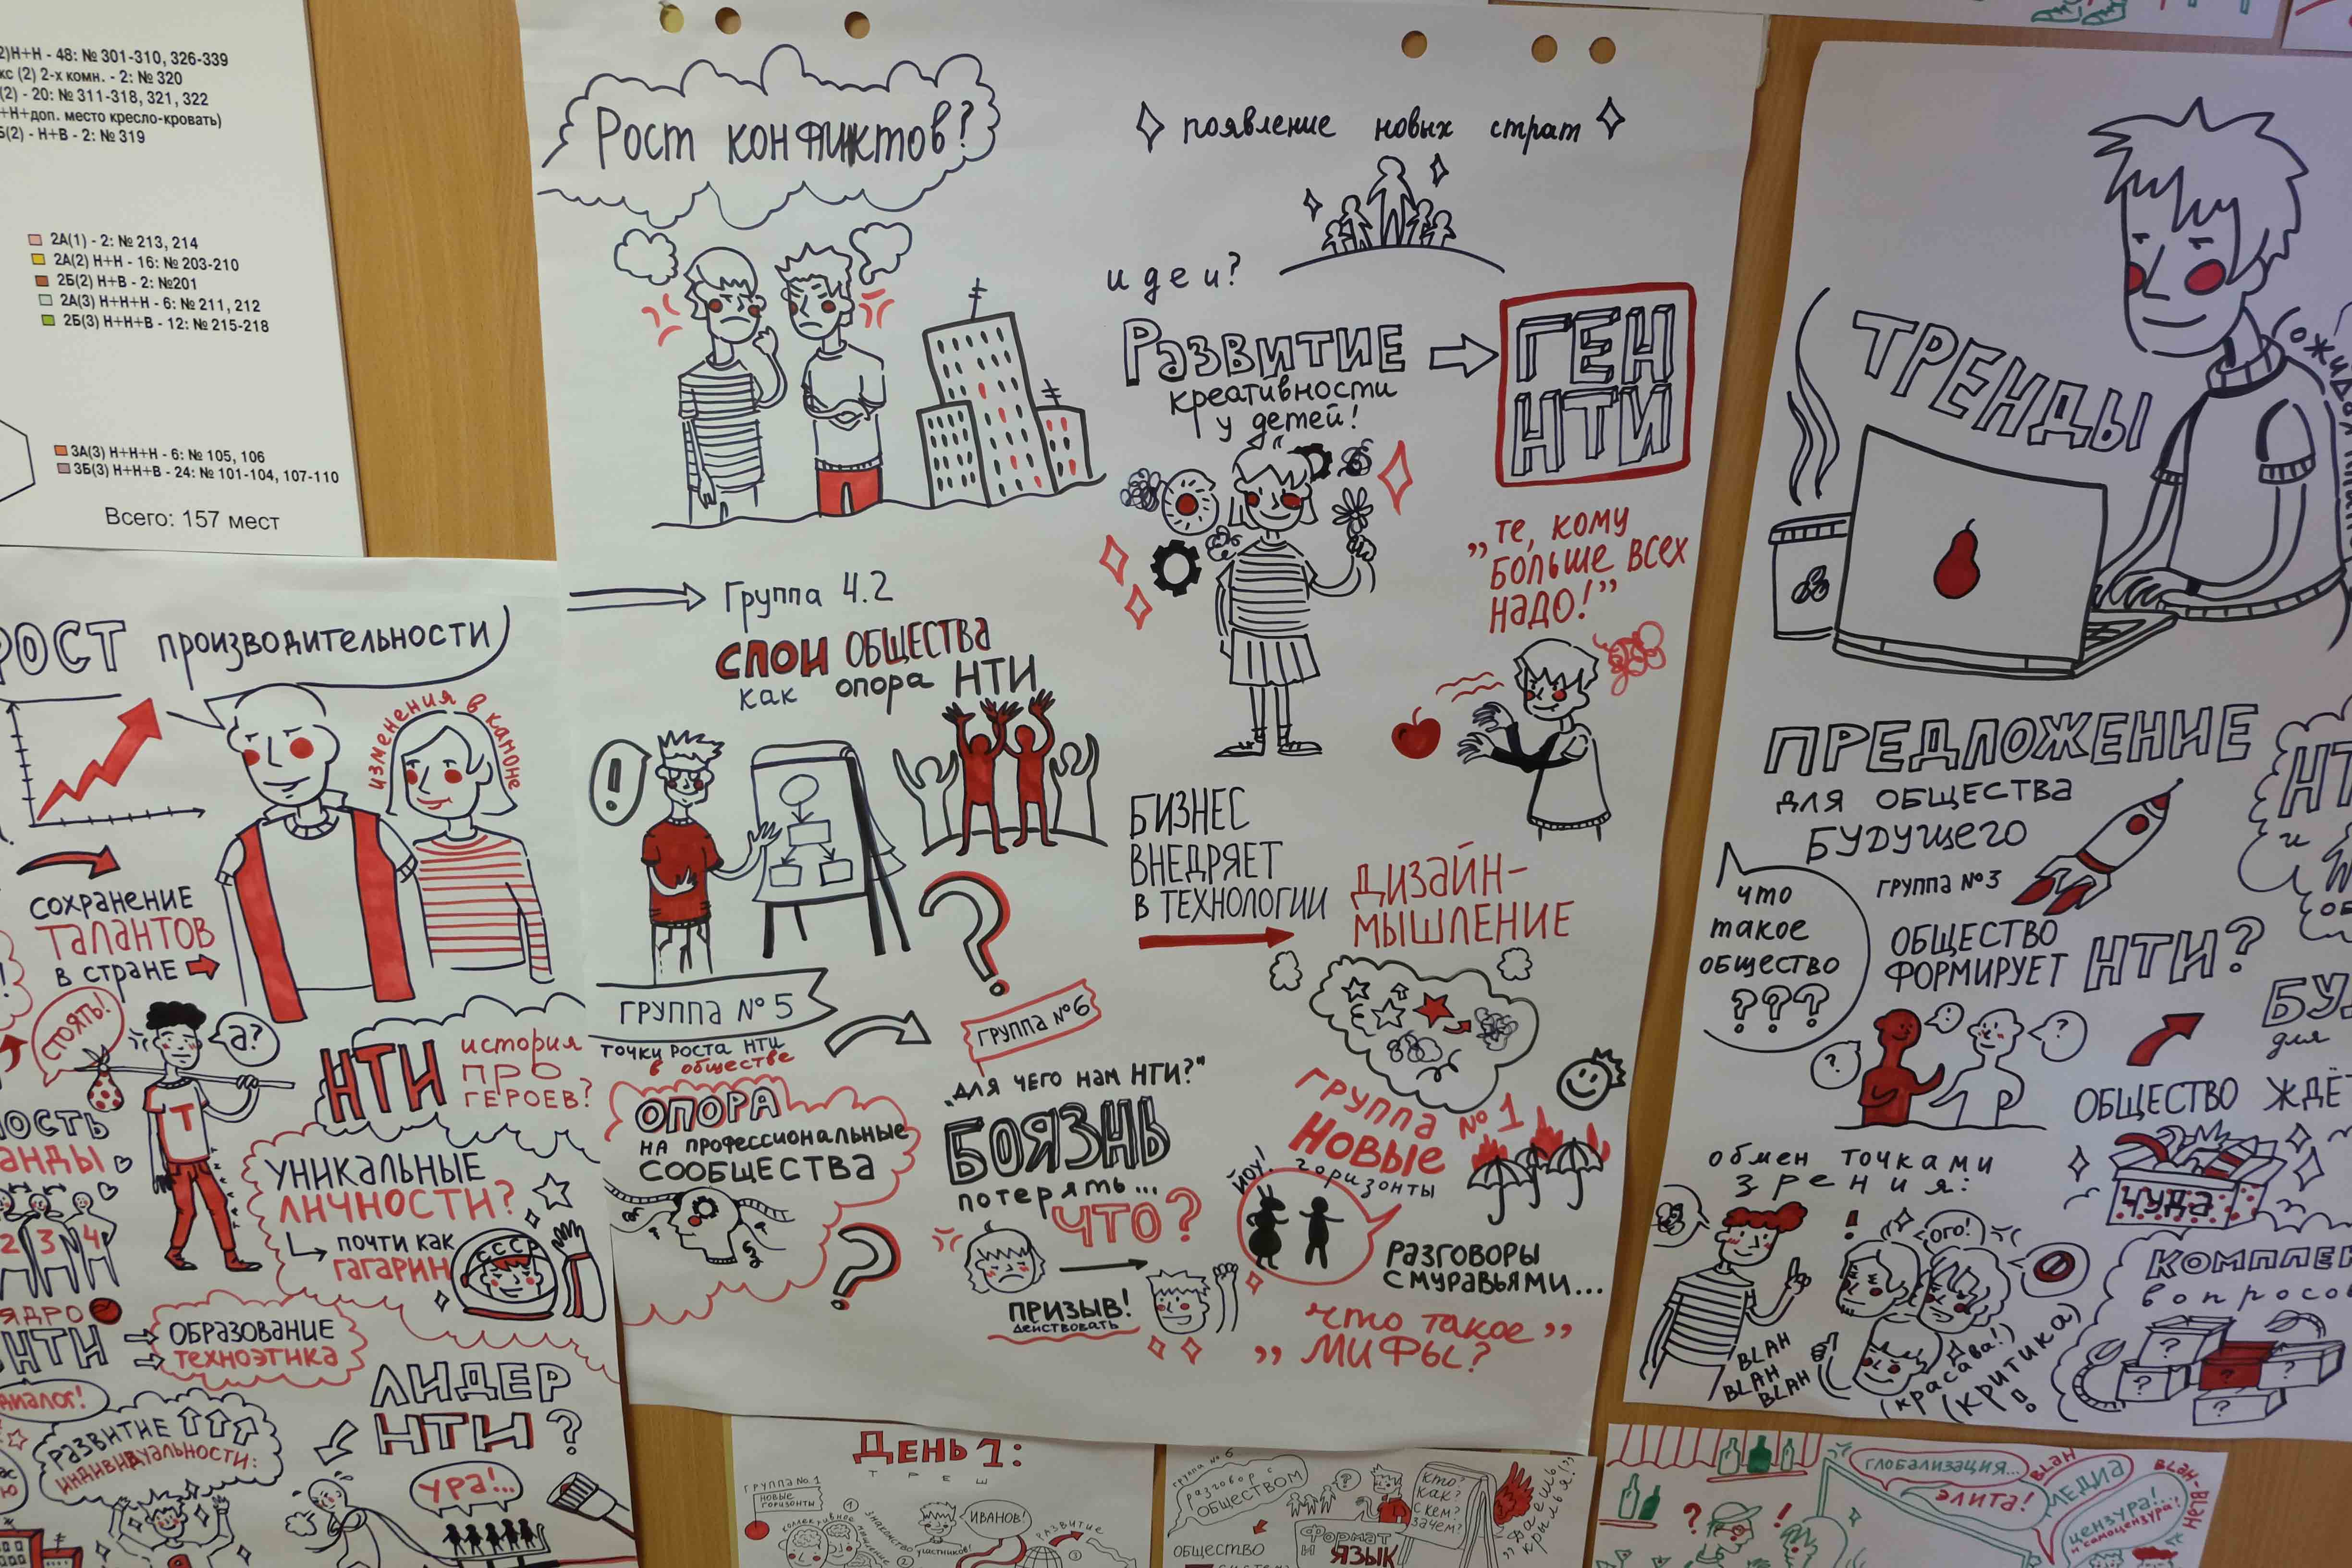 2)Н+Н - 48: № 301-310, 326-339
кс (2) 2-х комн. - 2: № 320
(2) - 20: № 311-318, 321, 322
+Н+доп. место кресло-кровать)
Б(2) - Н+В - 2: № 319
2А(1) - 2: № 213, 214
2А(2) Н+Н - 16: № 203-210
2Б(2) Н+В - 2: №201
2А(3) Н+Н+Н - 6: № 211, 212
2Б(3) Н+Н+В - 12: № 215-218
3А(3) Н+Н+Н - 6: № 105, 106
3Б(3) Н+Н+В - 24: № 101-104, 107-110
Всего: 157 мест
РОСТ производительности
изменения в каноне
сохранение
талантов
в стране
СТОЯТЬ!
а?
Т
НТИ
история
про
героев?
уникальные
личности?
почти как
гагарин
СССР
2 3 4
ЯДРО
НТИ
образование
техноэтика
диалог!
развитие
индивидуальности:
ЛИДЕР
НТИ?
УРА...
Рост конфликтов?
появление новых страт
идеи?
Развитие
креативности
у детей!
ГЕН
НТИ
„те, кому
больше всех
надо!”
Группа 4.2
слои общества
как опора НТИ
!
?
Группа № 5
точки роста НТИ
в обществе
ОПОРА
на профессиональные
сообщества
?
Группа №6
„для чего нам НТИ?"
БОЯЗНЬ
потерять...
ЧТО?
ПРИЗЫВ!
действовать
БИЗНЕС
ВНЕДРЯЕТ
В ТЕХНОЛОГИИ
ДИЗАЙН-
МЫШЛЕНИЕ
Группа №1
Новые
горизонты
йоу!
разговоры
с муравьями...
„ что такое ”
мифы?
ТРЕНДЫ
ПРЕДЛОЖЕНИЕ
для общества
будущего
группа №3
что
такое
общество
???
общество
формирует НТИ?
!
?
?
общество ждё
чуда
для
обмен точками
зрения:
!
ого!
BLAH
BLAH
BLAH
(красава!)
(критика)
!
? ? ? ?
День 1:
Группа №1
новые
горизонты
коллективное мышление
знакомство участников!
1
2
3
Иванов!
развитие
группа № 6
разговор с
обществом
?
кто?
как?
с кем?
зачем?
Формат
и
язык
общество
глобализация...
элита!
BLAH
медиа
BLAH-BLAH
цензура!..
и самоцензура!
? !